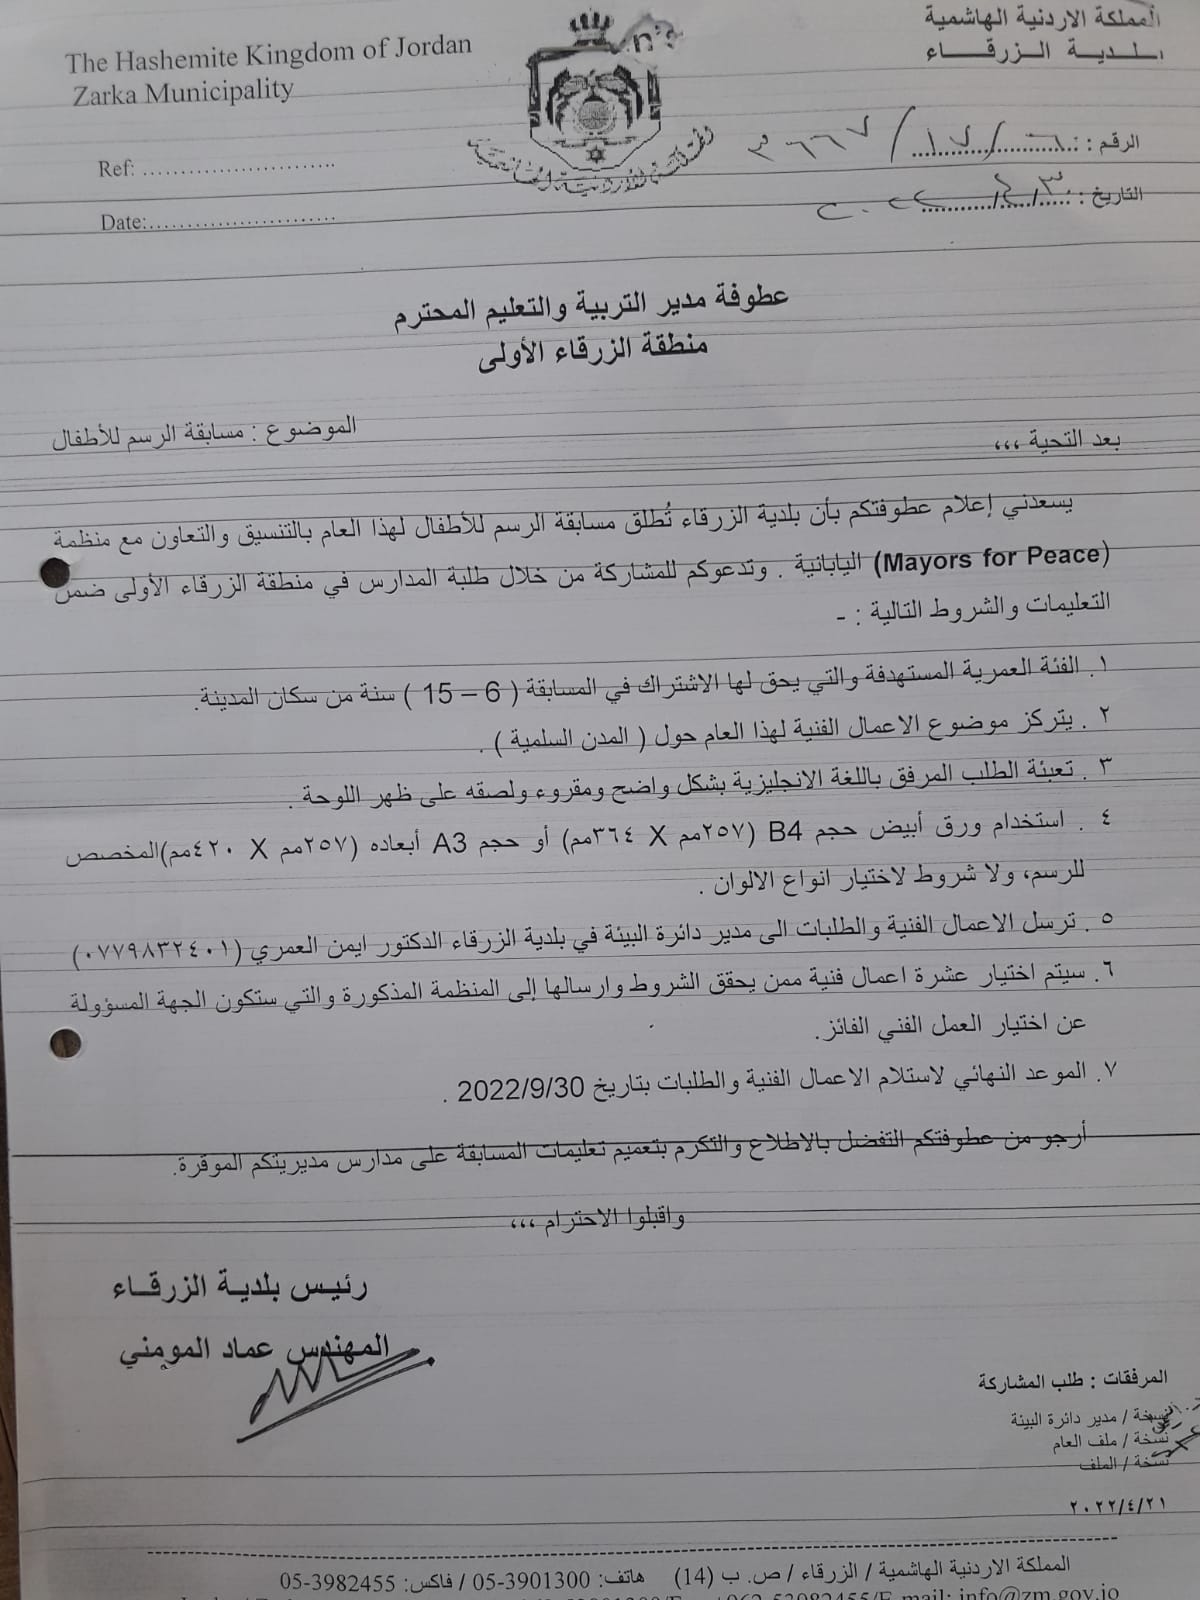 The Hashemite Kingdom of Jordan
Zarka Municipality
المملكة الاردنية الهاشمية
بلدية الزرقاء
Ref: ............................
Date:............................
الرقم : ٦/١٧/٣٦٦٧
التاريخ :
عطوفة مدير التربية والتعليم المحترم
منطقة الزرقاء الأولى
الموضوع : مسابقة الرسم للأطفال
بعد التحية ،،،
يسعدني إعلام عطوفتكم بأن بلدية الزرقاء تُطلق مسابقة الرسم للأطفال لهذا العام بالتنسيق والتعاون مع منظمة
(Mayors for Peace) اليابانية . وتدعوكم للمشاركة من خلال طلبة المدارس في منطقة الزرقاء الأولى ضمن
التعليمات والشروط التالية : -
١. الفئة العمرية المستهدفة والتي يحق لها الاشتراك في المسابقة ( 6 – 15 ) سنة من سكان المدينة.
٢ . يتركز موضوع الاعمال الفنية لهذا العام حول ( المدن السلمية ) .
٣ . تعبئة الطلب المرفق باللغة الانجليزية بشكل واضح ومقروء ولصقه على ظهر اللوحة .
٤ . استخدام ورق أبيض حجم B4 (٢٥٧مم X ٣٦٤مم) أو حجم A3 أبعاده (٢٥٧مم X ٤٢٠مم)المخصص
للرسم، ولا شروط لاختيار انواع الالوان .
٥ . ترسل الاعمال الفنية والطلبات الى مدير دائرة البيئة في بلدية الزرقاء الدكتور ايمن العمري (٠٧٧٩٨٣٢٤٠١)
٦. سيتم اختيار عشرة اعمال فنية ممن يحقق الشروط وارسالها إلى المنظمة المذكورة والتي ستكون الجهة المسؤولة
عن اختيار العمل الفني الفائز.
٧. الموعد النهائي لاستلام الاعمال الفنية والطلبات بتاريخ 2022/9/30 .
أرجو من عطوفتكم التفضل بالاطلاع والتكرم بتعميم تعليمات المسابقة على مدارس مديريتكم الموقرة.
واقبلوا الاحترام ،،،
رئيس بلدية الزرقاء
المهندس عماد المومني
المرفقات : طلب المشاركة
نسخة / مدير دائرة البيئة
نسخة / ملف العام
نسخة / الملف
٢٠٢٢/٤/٢١
المملكة الاردنية الهاشمية / الزرقاء / ص. ب (14) هاتف: 3901300-05 / فاكس: 3982455-05
E-mail: info@zm.gov.jo